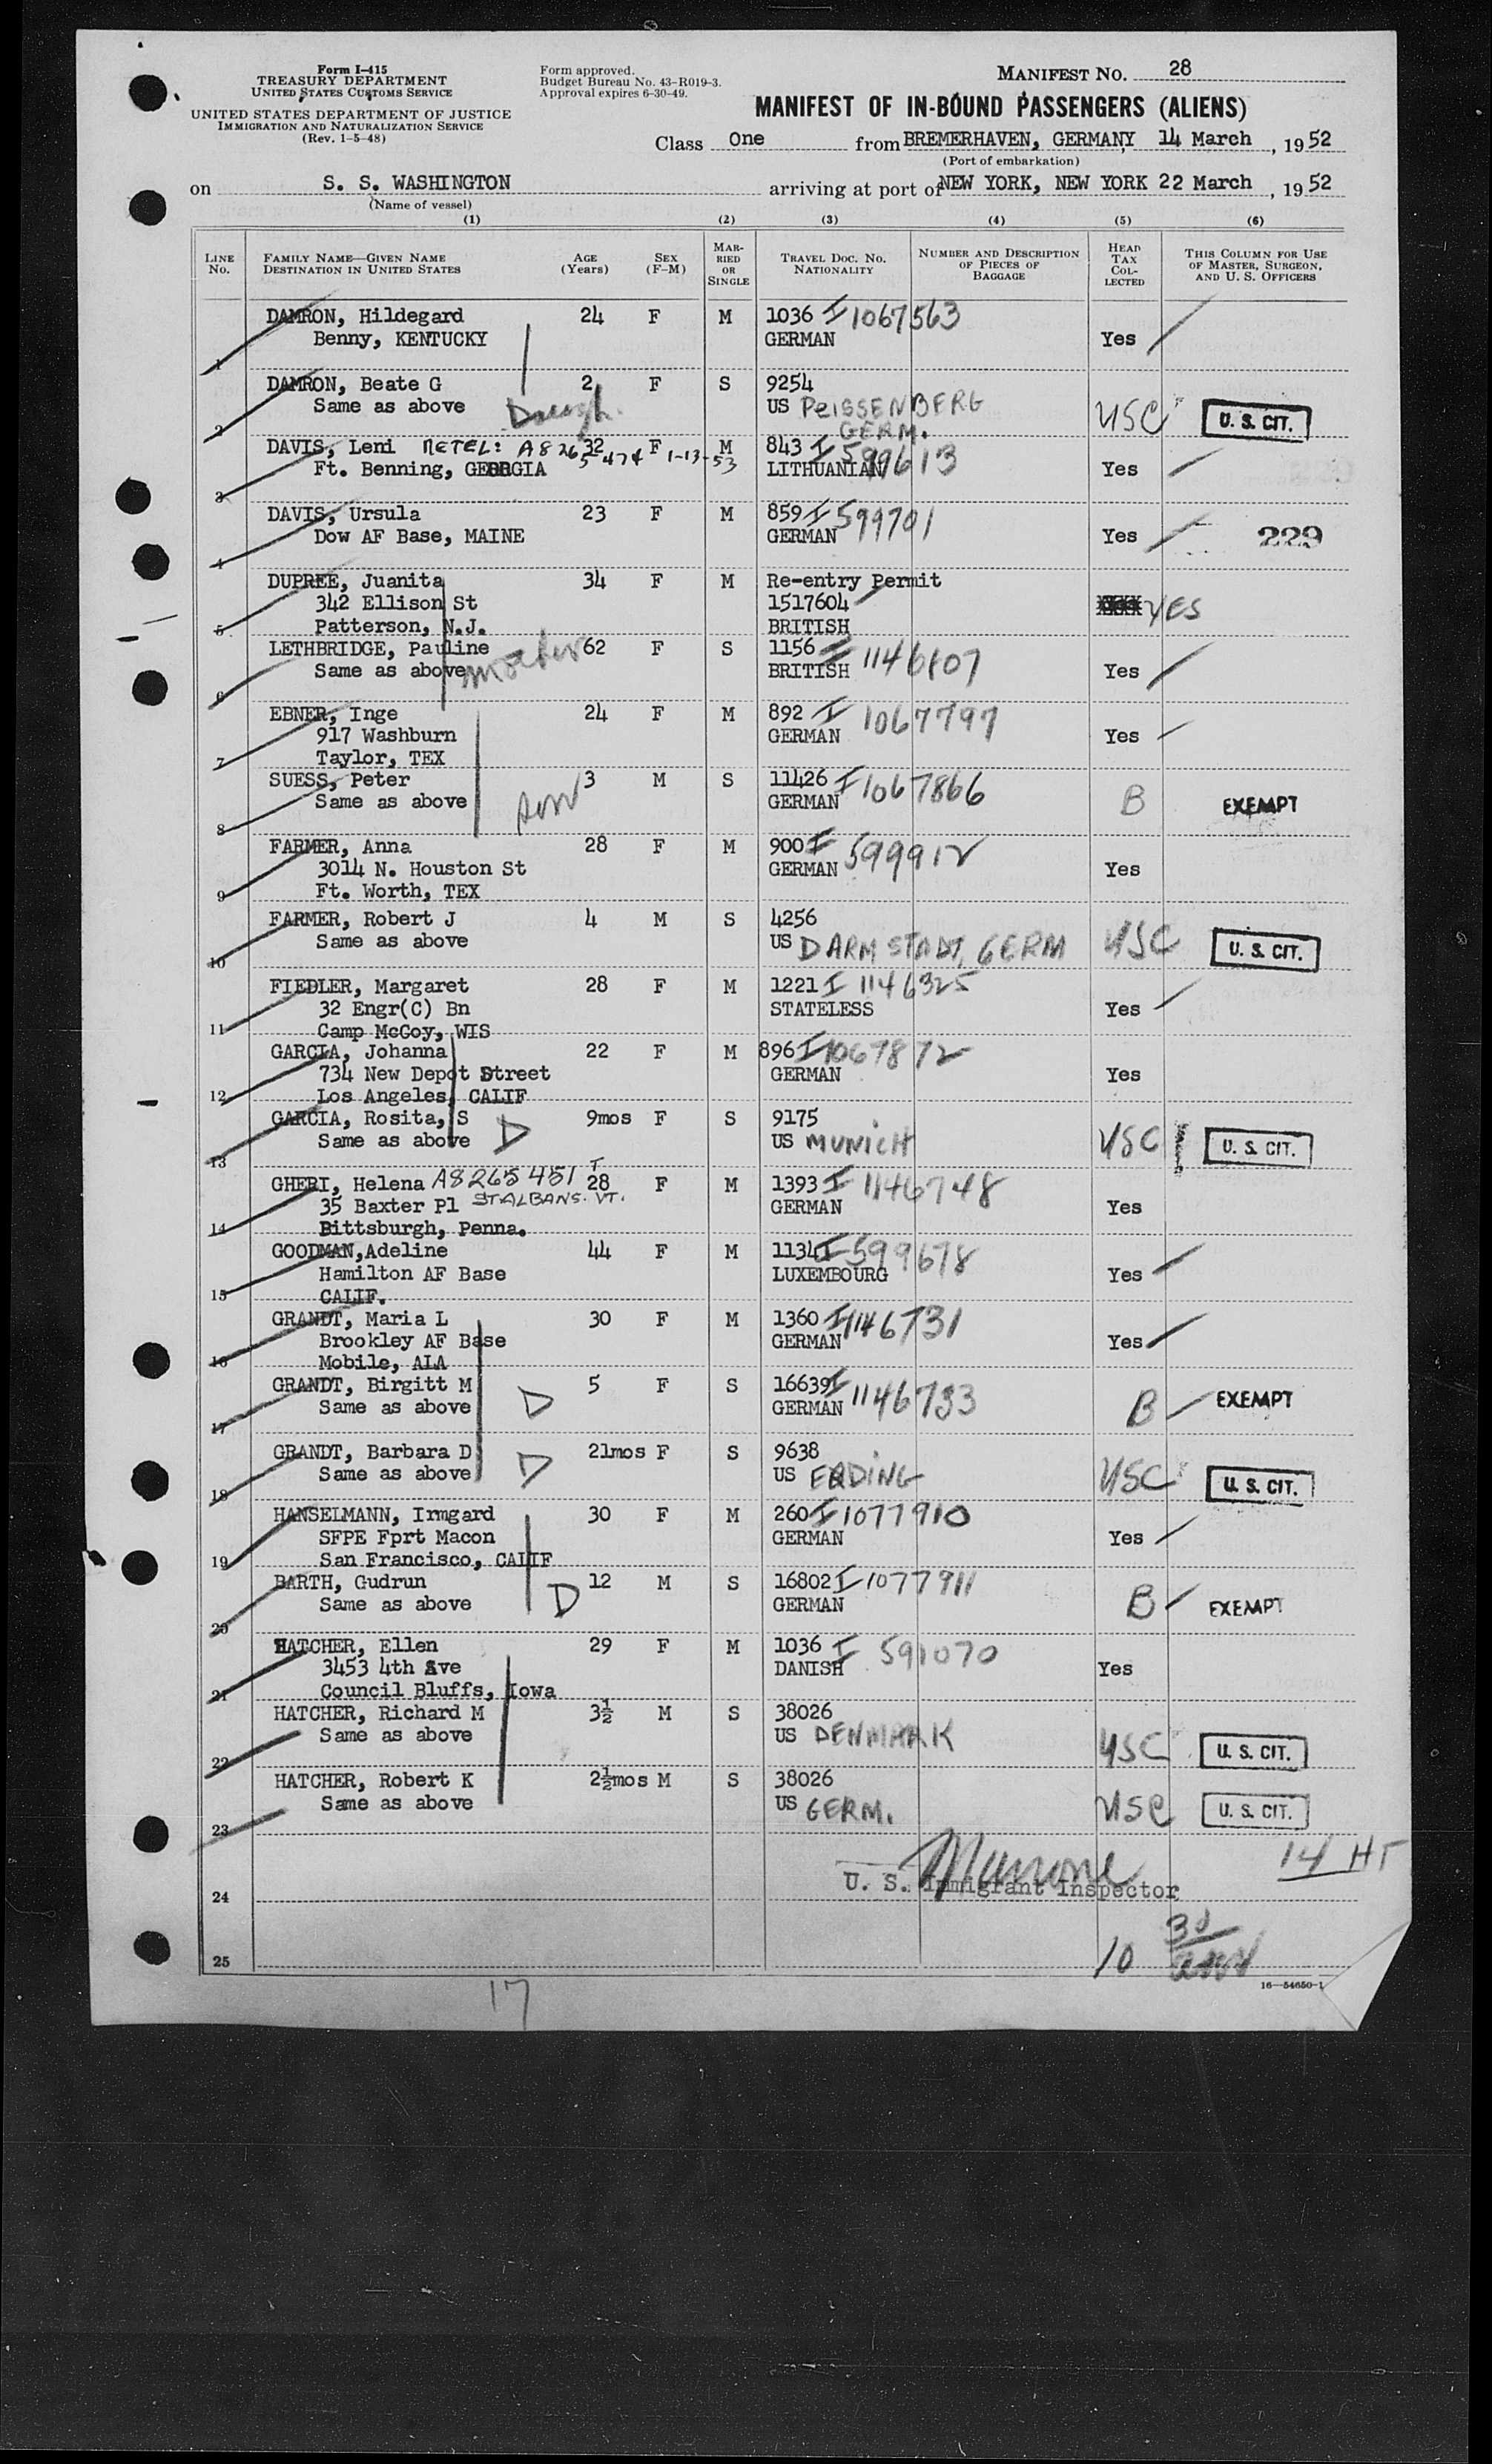 Form I-415
TREASURY DEPARTMENT
UNITED STATES CUSTOMS SERVICE
UNITED STATES DEPARTMENT OF JUSTICE
IMMIGRATION AND NATURALIZATION SERVICE
(Rev. 1-5-48)
Form approved.
Budget Bureau No. 43-R019-3.
Approval expires 6-30-49.
MANIFEST NO. 28
MANIFEST OF IN-BOUND PASSENGERS (ALIENS)
Class One from BREMERHAVEN, GERMANY 14 March, 1952
(Port of embarkation)
on S. S. WASHINGTON arriving at port of NEW YORK, NEW YORK 22 March, 1952
(Name of vessel)
(1) (2) (3) (4) (5) (6)
LINE No.
FAMILY NAME—GIVEN NAME
DESTINATION IN UNITED STATES
AGE (Years)
SEX (F-M)
MARRIED OR SINGLE
TRAVEL DOC. NO. NATIONALITY
NUMBER AND DESCRIPTION OF PIECES OF BAGGAGE
HEAD TAX COLLECTED
THIS COLUMN FOR USE OF MASTER, SURGEON, AND U. S. OFFICERS
DAMRON, Hildegard 24 F M 1036 I 1067563
Benny, KENTUCKY GERMAN Yes
1
DAMRON, Beate G 2 F S 9254
Same as above Daugh. US PEISSENBERG GERM. USC U. S. CIT.
2
DAVIS, Leni RETEL: A8265474 1-13-53 32 F M 843 I 599613
Ft. Benning, GEORGIA LITHUANIAN Yes
3
DAVIS, Ursula 23 F M 859 I 599701
Dow AF Base, MAINE GERMAN Yes 229
4
DUPREE, Juanita 34 F M Re-entry Permit
342 Ellison St 1517604 YES
5 Patterson, N.J. BRITISH
LETHBRIDGE, Pauline mother 62 F S 1156 I 1146807
Same as above BRITISH Yes
6
EBNER, Inge 24 F M 892 I 1067797
917 Washburn GERMAN Yes
7 Taylor, TEX
SUESS, Peter son 3 M S 11426 I 1067866
Same as above GERMAN B EXEMPT
8
FARMER, Anna 28 F M 900 I 599912
3014 N. Houston St GERMAN Yes
9 Ft. Worth, TEX
FARMER, Robert J 4 M S 4256
Same as above US DARMSTADT, GERM USC U. S. CIT.
10
FIEDLER, Margaret 28 F M 1221 I 1146325
32 Engr(C) Bn STATELESS Yes
11 Camp McCoy, WIS
GARCIA, Johanna 22 F M 896 I 1067872
734 New Depot Street GERMAN Yes
12 Los Angeles, CALIF
GARCIA, Rosita, S 9mos F S 9175
Same as above D US MUNICH USC U. S. CIT.
13
GHERI, Helena A8265451 28 F M 1393 I 1146748
35 Baxter Pl ST ALBANS. VT. GERMAN Yes
14 Pittsburgh, Penna.
GOODMAN, Adeline 44 F M 1134 I 599678
Hamilton AF Base LUXEMBOURG Yes
15 CALIF.
GRANDT, Maria L 30 F M 1360 I 1146731
Brookley AF Base GERMAN Yes
16 Mobile, ALA
GRANDT, Birgitt M 5 F S 16639 I 1146733
Same as above D GERMAN B EXEMPT
17
GRANDT, Barbara D 21mos F S 9638
Same as above D US ERDING USC U. S. CIT.
18
HANSELMANN, Irmgard 30 F M 260 I 1077910
SFPE Fprt Macon GERMAN Yes
19 San Francisco, CALIF
BARTH, Gudrun 12 M S 16802 I 1077911
Same as above D GERMAN B EXEMPT
20
HATCHER, Ellen 29 F M 1036 I 591070
3453 4th Ave DANISH Yes
21 Council Bluffs, Iowa
HATCHER, Richard M 3½ M S 38026
Same as above US DENMARK USC U. S. CIT.
22
HATCHER, Robert K 2½mos M S 38026
Same as above US GERM. USC U. S. CIT.
23
14 HT
U. S. Immigrant Inspector
24
10 30
25
16—54650-1
17